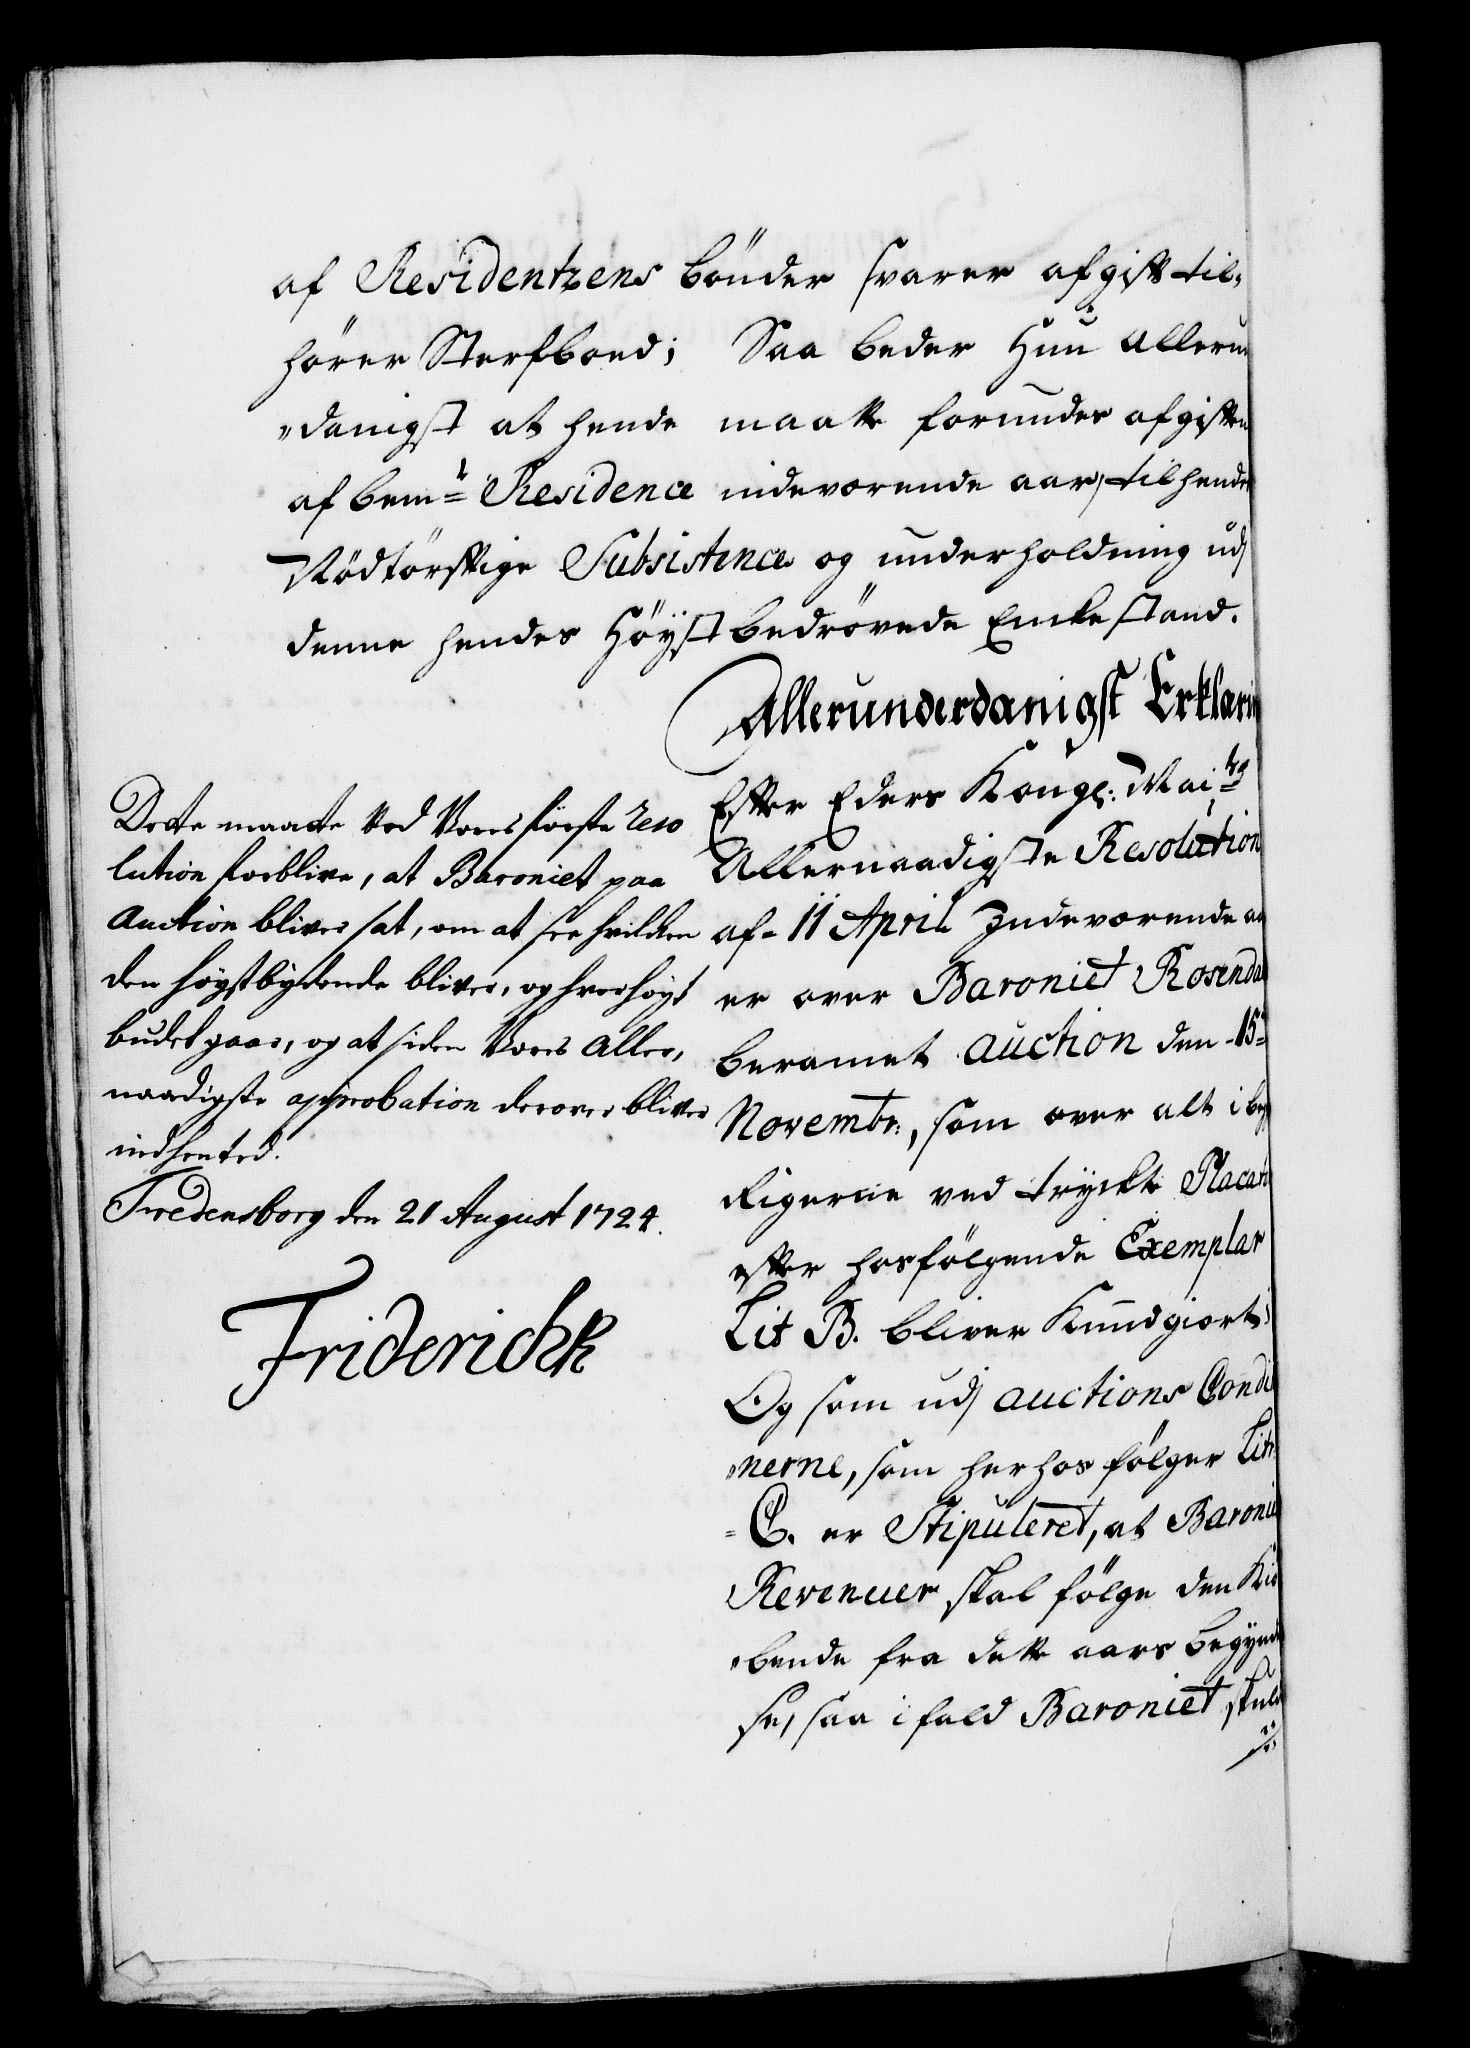 af Residentzens bönder svarer afgift til-
hörer Sterfboed; Saa beder Hun Allerun
"danigst at hende maatte forundes afgiften
af bemte Residence indeværende aar, til hendes
Nödtörftige Subsistence og underholdning udj
denne hendes Höyst bedrövede Encke stand.
Allerunderdanigst Erklærin
Efter Eders Kongl: Maits
Allernaadigste Resolution
af 11 April Indeværende aa
er over Baroniet Rosendal
beramet auction den 15de
Novembr:, som over alt i beg
Rigerne ved tryckte Placate
efter hosfölgende Exemplar
Lit B. bliver Kundgiort;
Og som udj auctions Condi
"nerne, som herhos fölger Litr.
= C. er Stipuleret, at Baronie
Revenuer skal fölge den Kiö
"bende fra dette aars begynd
se, saa i fald Baroniet skuld
Dette maatte ved Vores förste reso
lution forblive, at Baroniet paa
Auction bliver sat, om at see hvilken
den höystbydende bliver, og hvor höyt
budet gaar, og at siden Vores Aller,
naadigste approbation derover bliver
indhented.
Fredensborg den 21 August 1724.
Friderich R